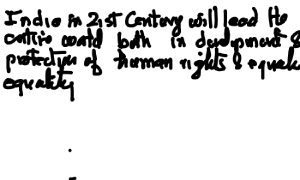 India in 21st Century will lead the
entire world both in development &
protection of human rights & equal
equality